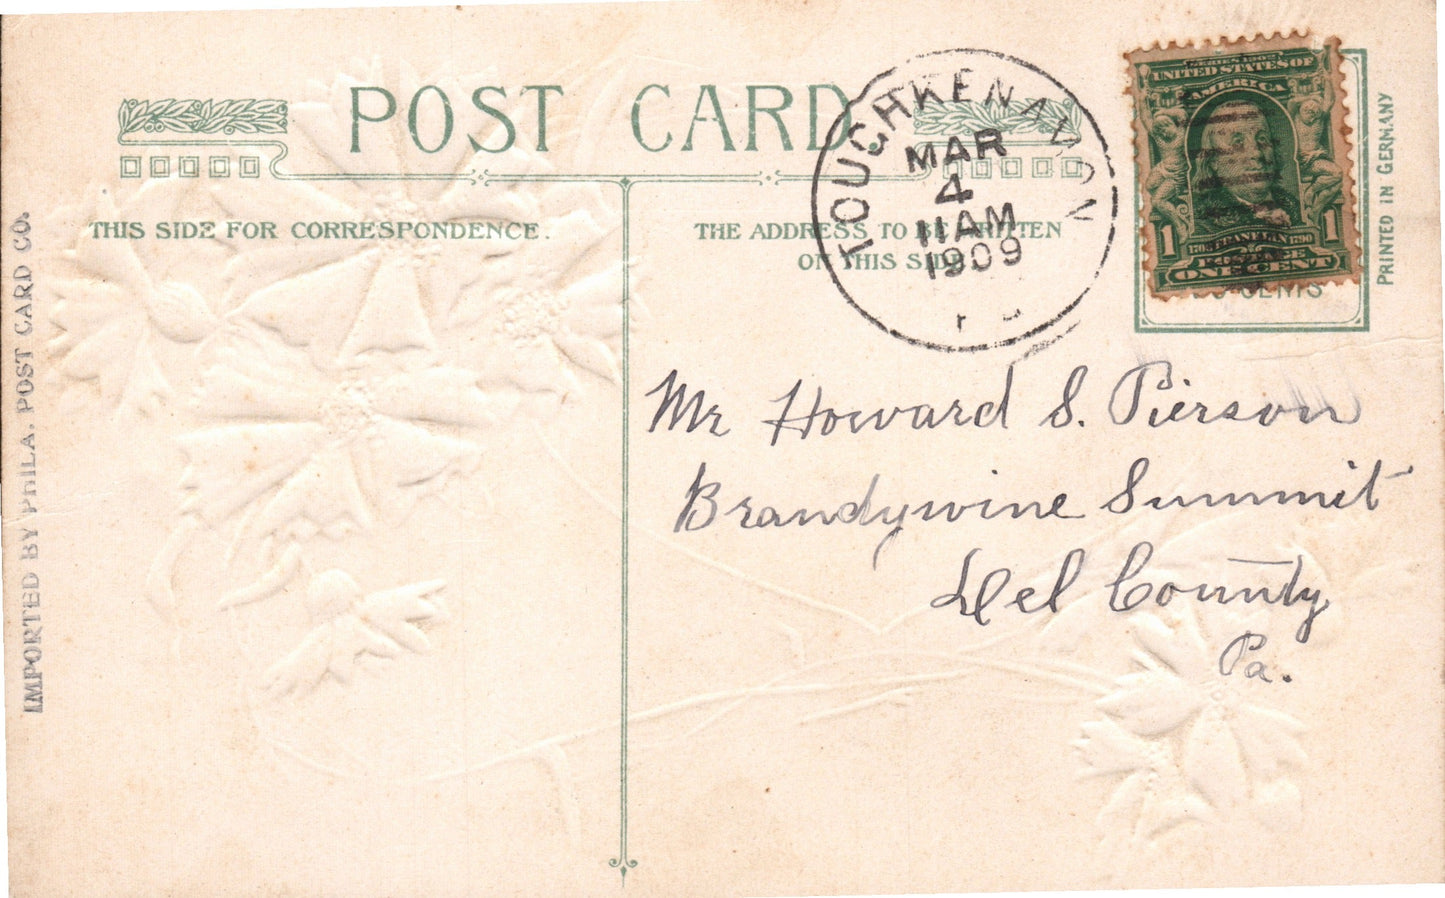 POST CARD
THIS SIDE FOR CORRESPONDENCE.
THE ADDRESS TO BE WRITTEN
ON THIS SIDE
TOUGHKENAMON
MAR
4
11 AM
1909
SERIES 1902
UNITED STATES OF
AMERICA
1 FRANKLIN 1790 1
POSTAGE
ONE CENT
CENTS
PRINTED IN GERMANY
IMPORTED BY PHILA. POST CARD CO.
Mr Howard S. Pierson
Brandywine Summit
Del County
Pa.